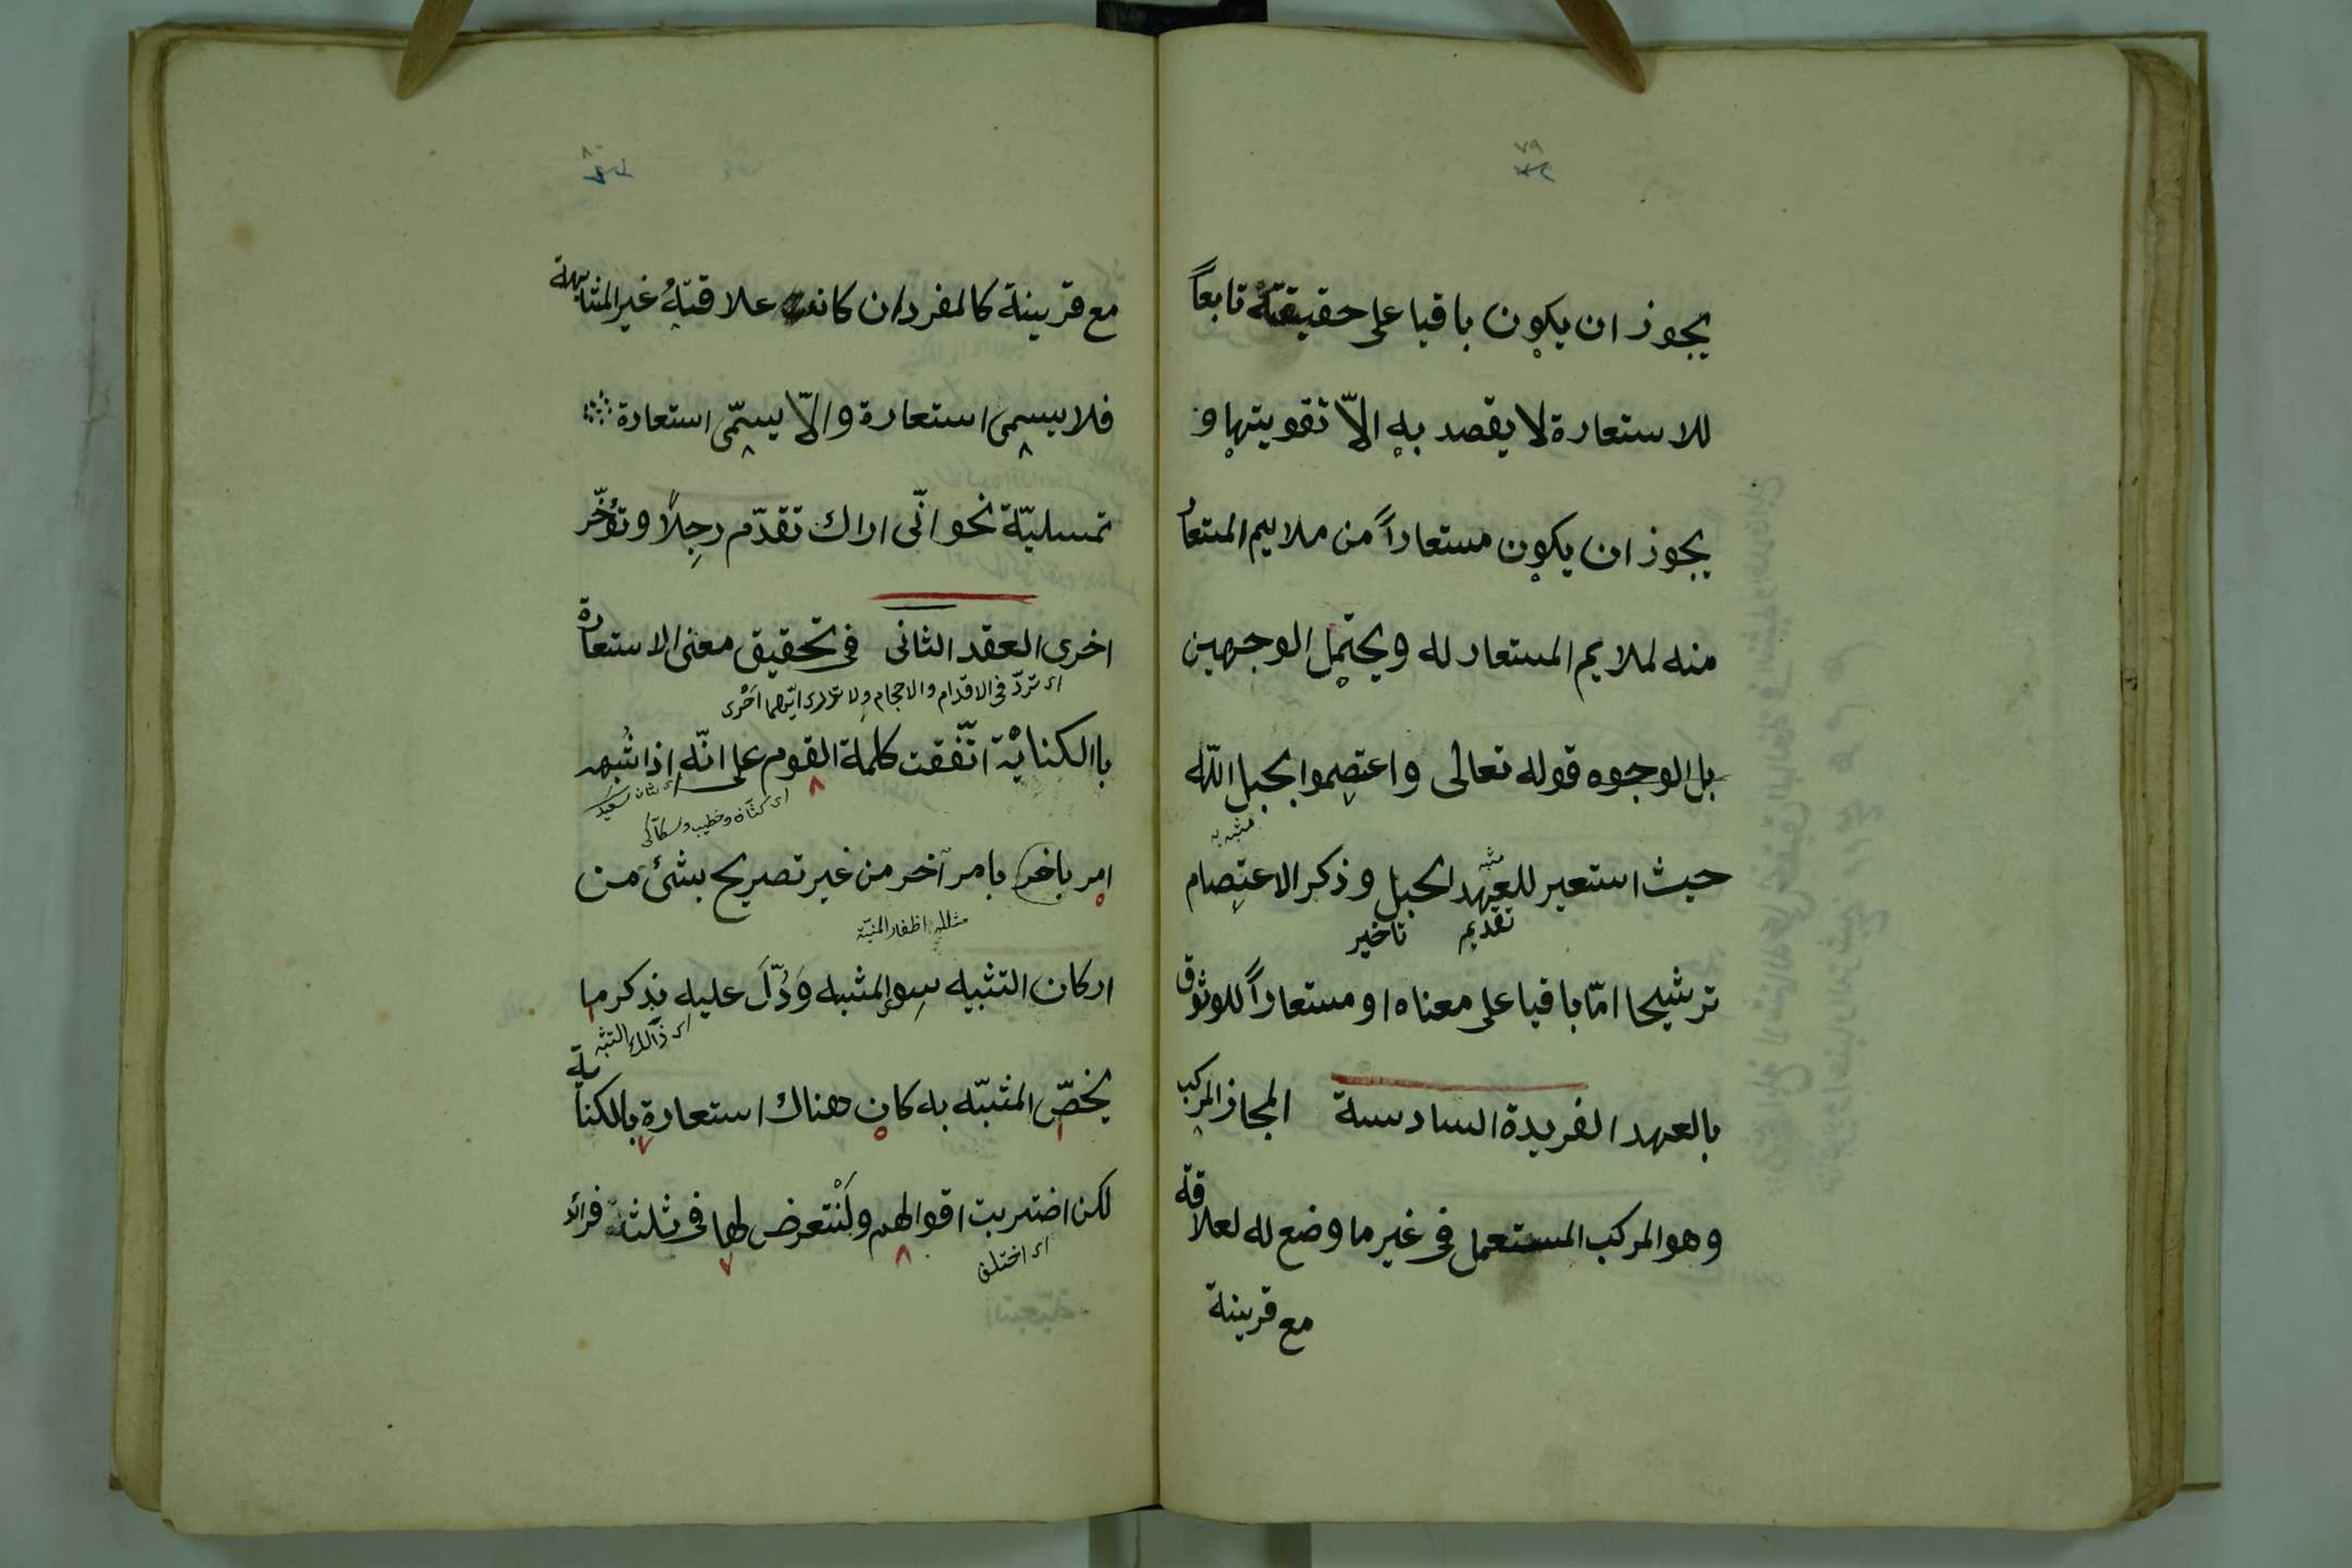 ٧٩
يجوز ان يكون باقيا على حقيقته تابعاً
للاستعارة لا يقصد به الاّ تقويتها و
يجوز ان يكون مستعاراً من ملايم المستعار
منه لملايم المستعار له ويحتمل الوجهين
بل الوجوه قوله تعالى واعتصموا بحبل اللّه
مشبه به
مشبه
حيث استعير للعهد الحبل وذكر الاعتصام
تقديم تاخير
ترشيحا امّا باقيا على معناه او مستعاراً للوثوق
بالعهد الفريدة السادسة المجاز المركب
وهو المركب المستعمل فى غير ما وضع له لعلاقة
مع قرينة
مع قرينة كالمفرد ان كانت علاقتهُ غير المشابهة
فلا يسمى استعارة والاّ يسمّى استعارة
تمسليّة نحو انّى اراك تقدّم رجِلاً وتؤخّر
اخرى العقد الثانى فى تحقيق معنى الاستعارة
اى تردّ فى الاقدام والاحجام ولا تدرى ايّهما اَحْرى
باالكناية اتّفقت كلمة القوم على انّه اذا شُبه
امر باخر بامر آخر من غير تصريح بشئ من
مثلله اظفار المنيّة
اركان التشبيه سوا المشبه وَدُلَّ عليه بذكر ما
اى ذالك التشبه
يخصّ المشبّه به كان هناك استعارة بالكناية
لكن اضتربت اقوالهم ولْنتعرض لها فى ثلثة فرائد
اى اختلف